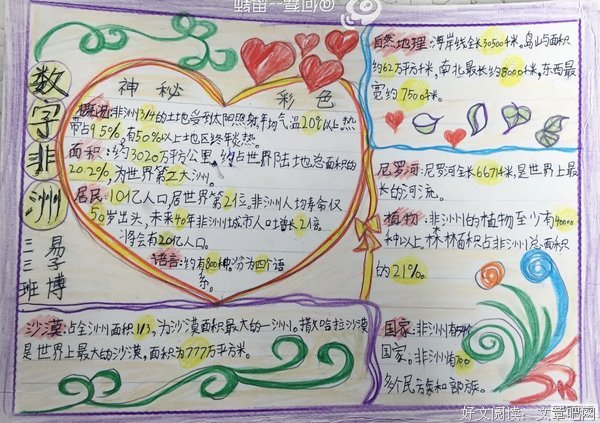 数字非洲
三三班
易孚博
神秘
彩色
概况:非洲3/4的土地受到太阳照射年均气温20°以上热
带占95%,有50%以上地区终年炎热。
面积:约3020万平方公里。约占世界陆地总面积的
20.2%,为世界第二大洲。
居民:10亿人口居世界第2位。非洲人均寿命仅
50岁出头,未来40年非洲城市人口增长2倍。
将会有20亿人口。
语言:约有800种。分为四个语
系。
沙漠:占全洲面积1/3,为沙漠面积最大的一洲。撒哈拉沙漠
是世界上最大的沙漠。面积为777万平方米。
自然地理:海岸线全长30500千米。岛屿面积
约62万平方千米,南北最长约8000千米,东西最
宽约7500千米。
尼罗河:尼罗河全长6671千米,是世界上最
长的河流。
植物:非洲的植物至少有40000
种以上,森林面积占非洲总面积
的21%。
国家:非洲有
国家。非洲有700
多个民族和部族。
好文阅读:文章吧网